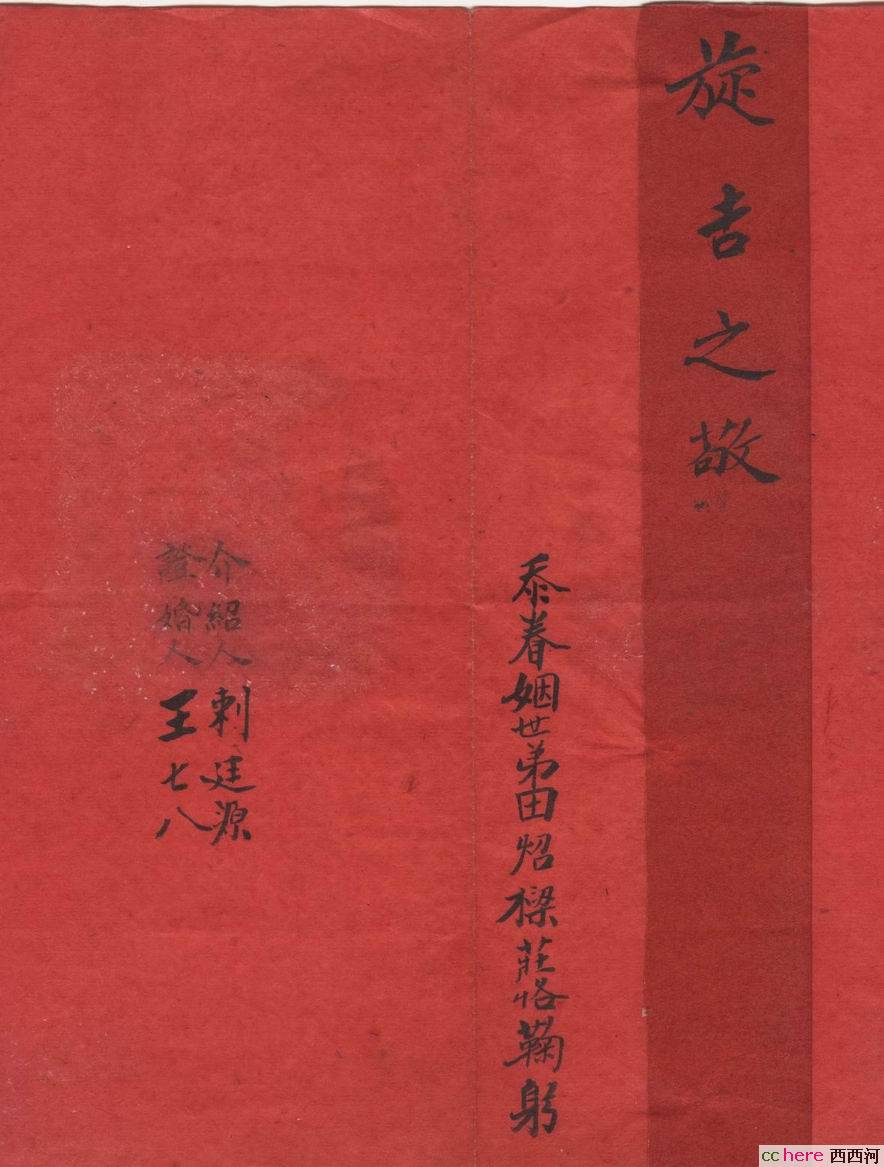 旋吉之敬
忝眷姻世弟田炤樑莊恪鞠躬
介紹人 刺廷源
證婚人 王七八
cchere 西西河